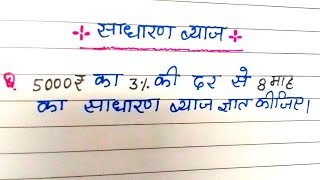 साधारण ब्याज
Q. 5000₹ का 3% की दर से 8 माह
का साधारण ब्याज ज्ञात कीजिए।